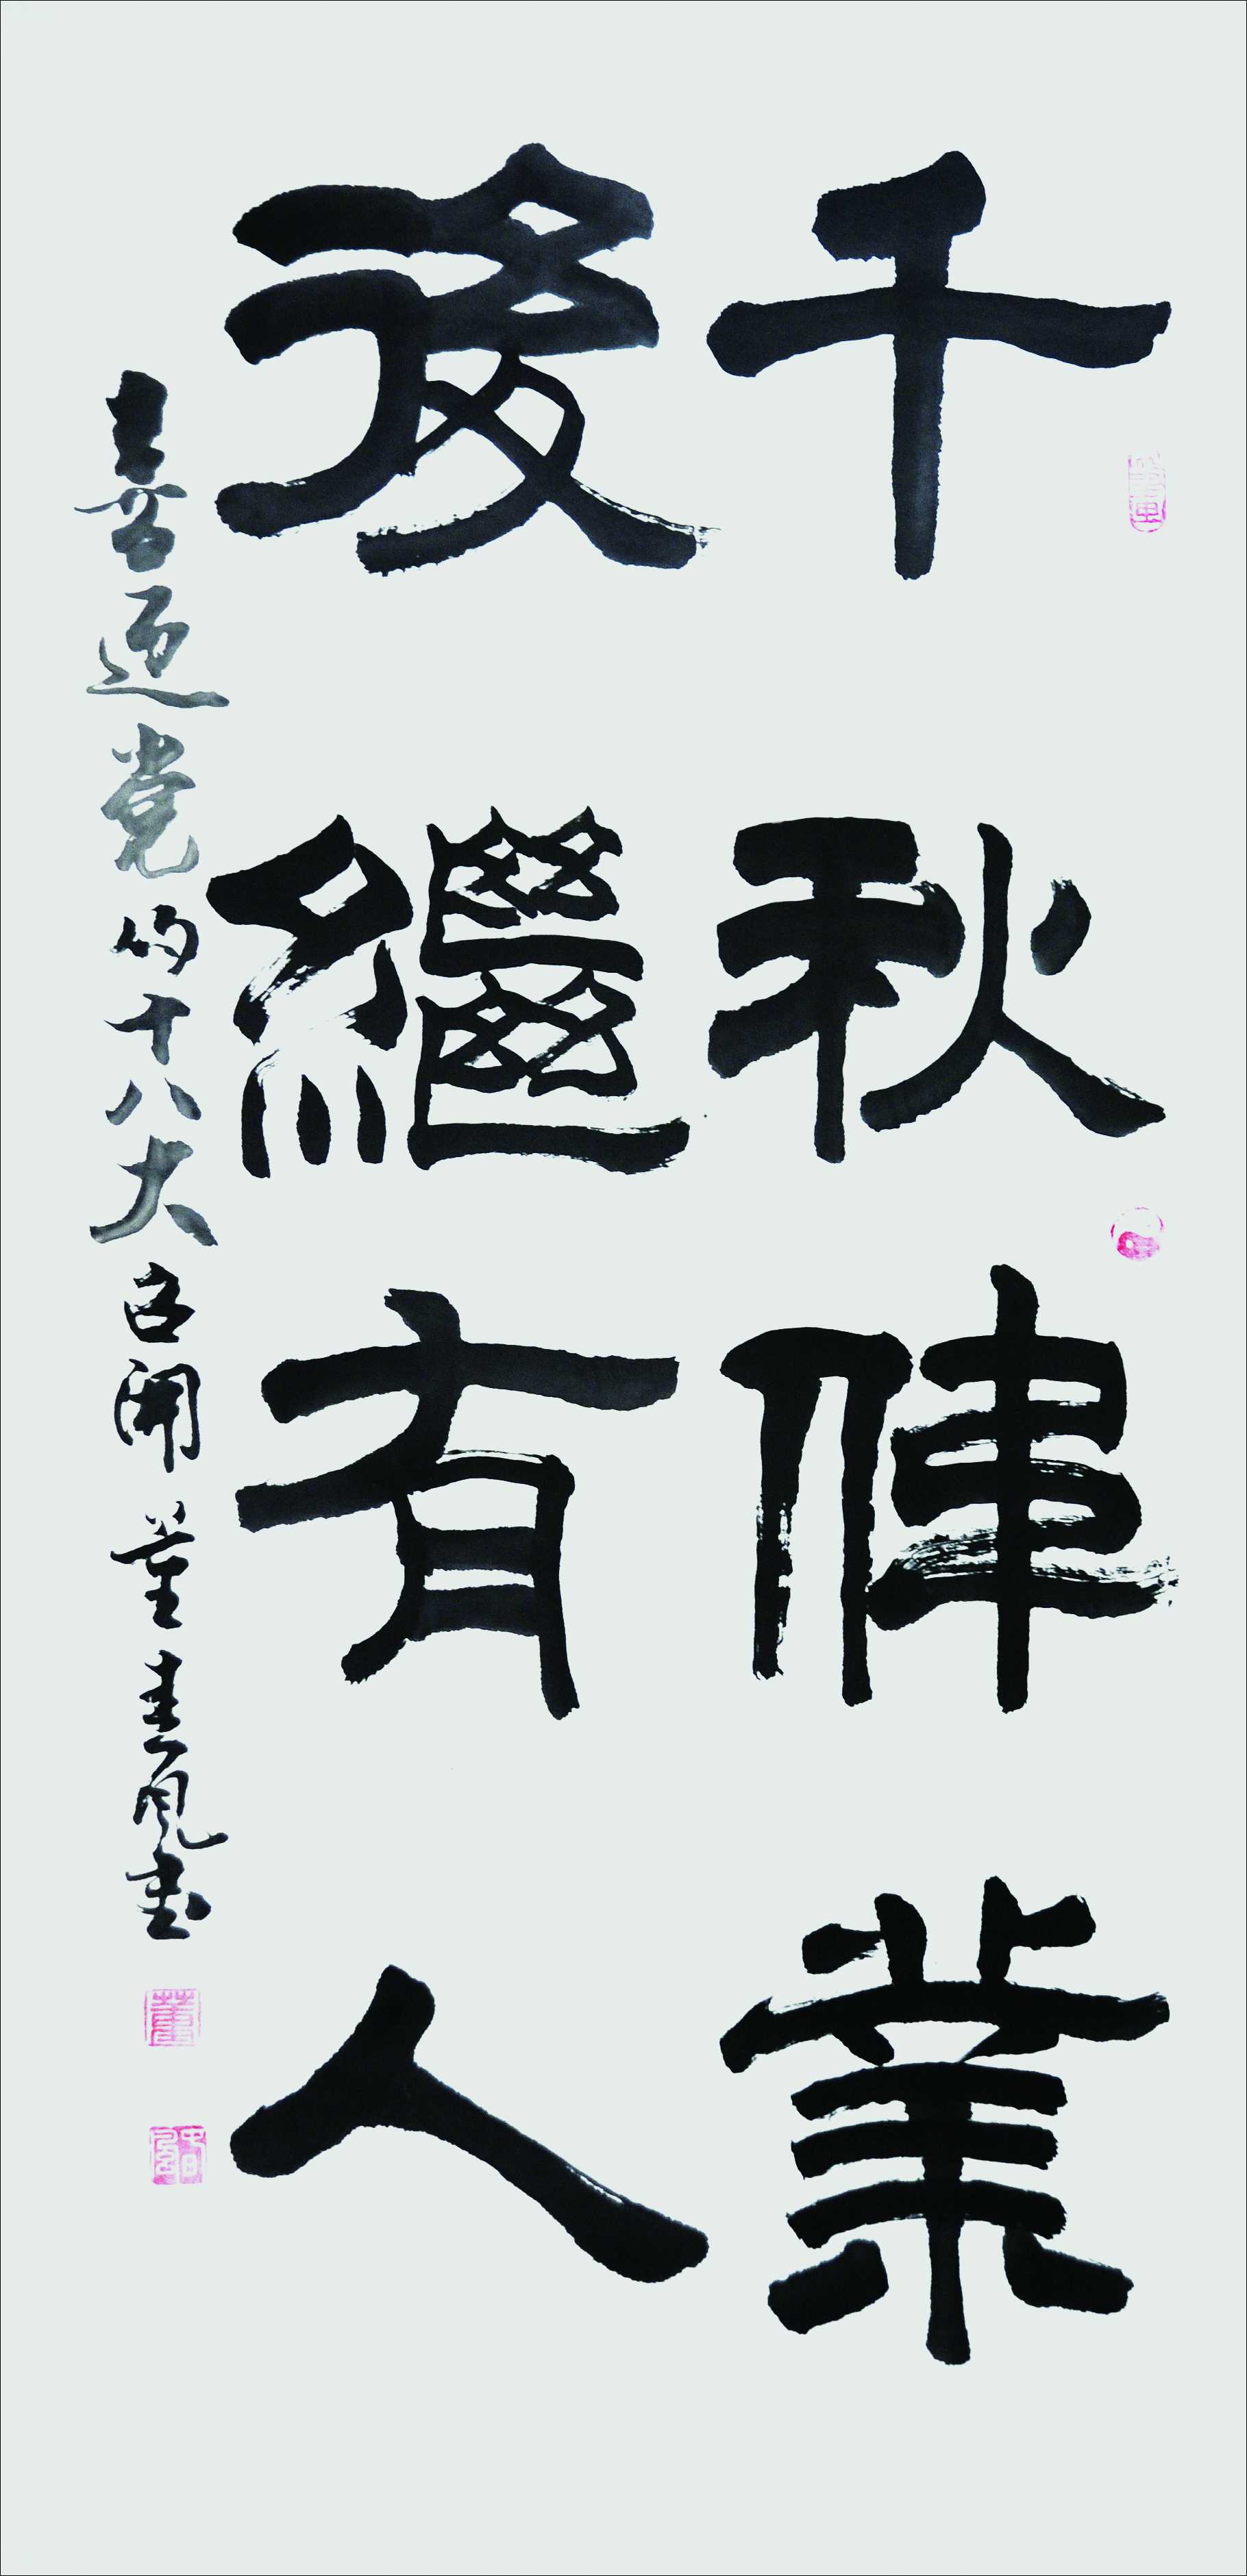 千秋偉業
後繼有人
喜迎党的十八大召開 董春風书